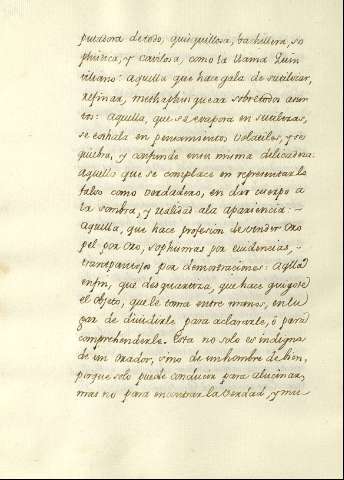 putadora de todo; quisquillosa, bachillera, so
phistica, y cavilosa, como la llama Quin
tiliano: aquella que hace gala de sutilizar,
refinar, methaphisiquear sobre todos asun
tos: aquella, que se evapora en sutilezas,
se exhala en pensamientos volatiles, y se
quiebra, y confunde en su misma delicadeza:
aquella que se complace en representar lo
falso como verdadero, en dar cuerpo a
la sombra, y realidad a la apariencia:-
aquella, que hace profesión de vender Oro
pel por Oro, sophismas por evidencias,
trampantojos por demostraciones: aqllâ
enfin, que desquartiza, que hace gigote
el objeto, que le toma entre manos, en lu
gar de dividirle para aclararle, ó para
comprehenderle. Esta no solo es indigna
de un Orador, sino de un hombre de bien,
porque solo puede conducir para alucinar,
mas no para encontrar la verdad, y mu